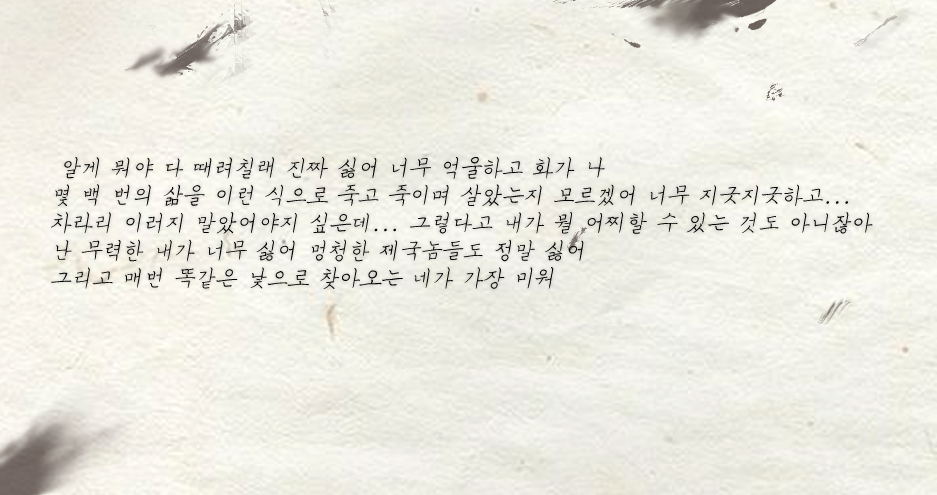 알게 뭐야 다 때려칠래 진짜 싫어 너무 억울하고 화가 나
몇 백 번의 삶을 이런 식으로 죽고 죽이며 살았는지 모르겠어 너무 지긋지긋하고...
차라리 이러지 말았어야지 싶은데... 그렇다고 내가 뭘 어찌할 수 있는 것도 아니잖아
난 무력한 내가 너무 싫어 멍청한 제국놈들도 정말 싫어
그리고 매번 똑같은 낯으로 찾아오는 네가 가장 미워